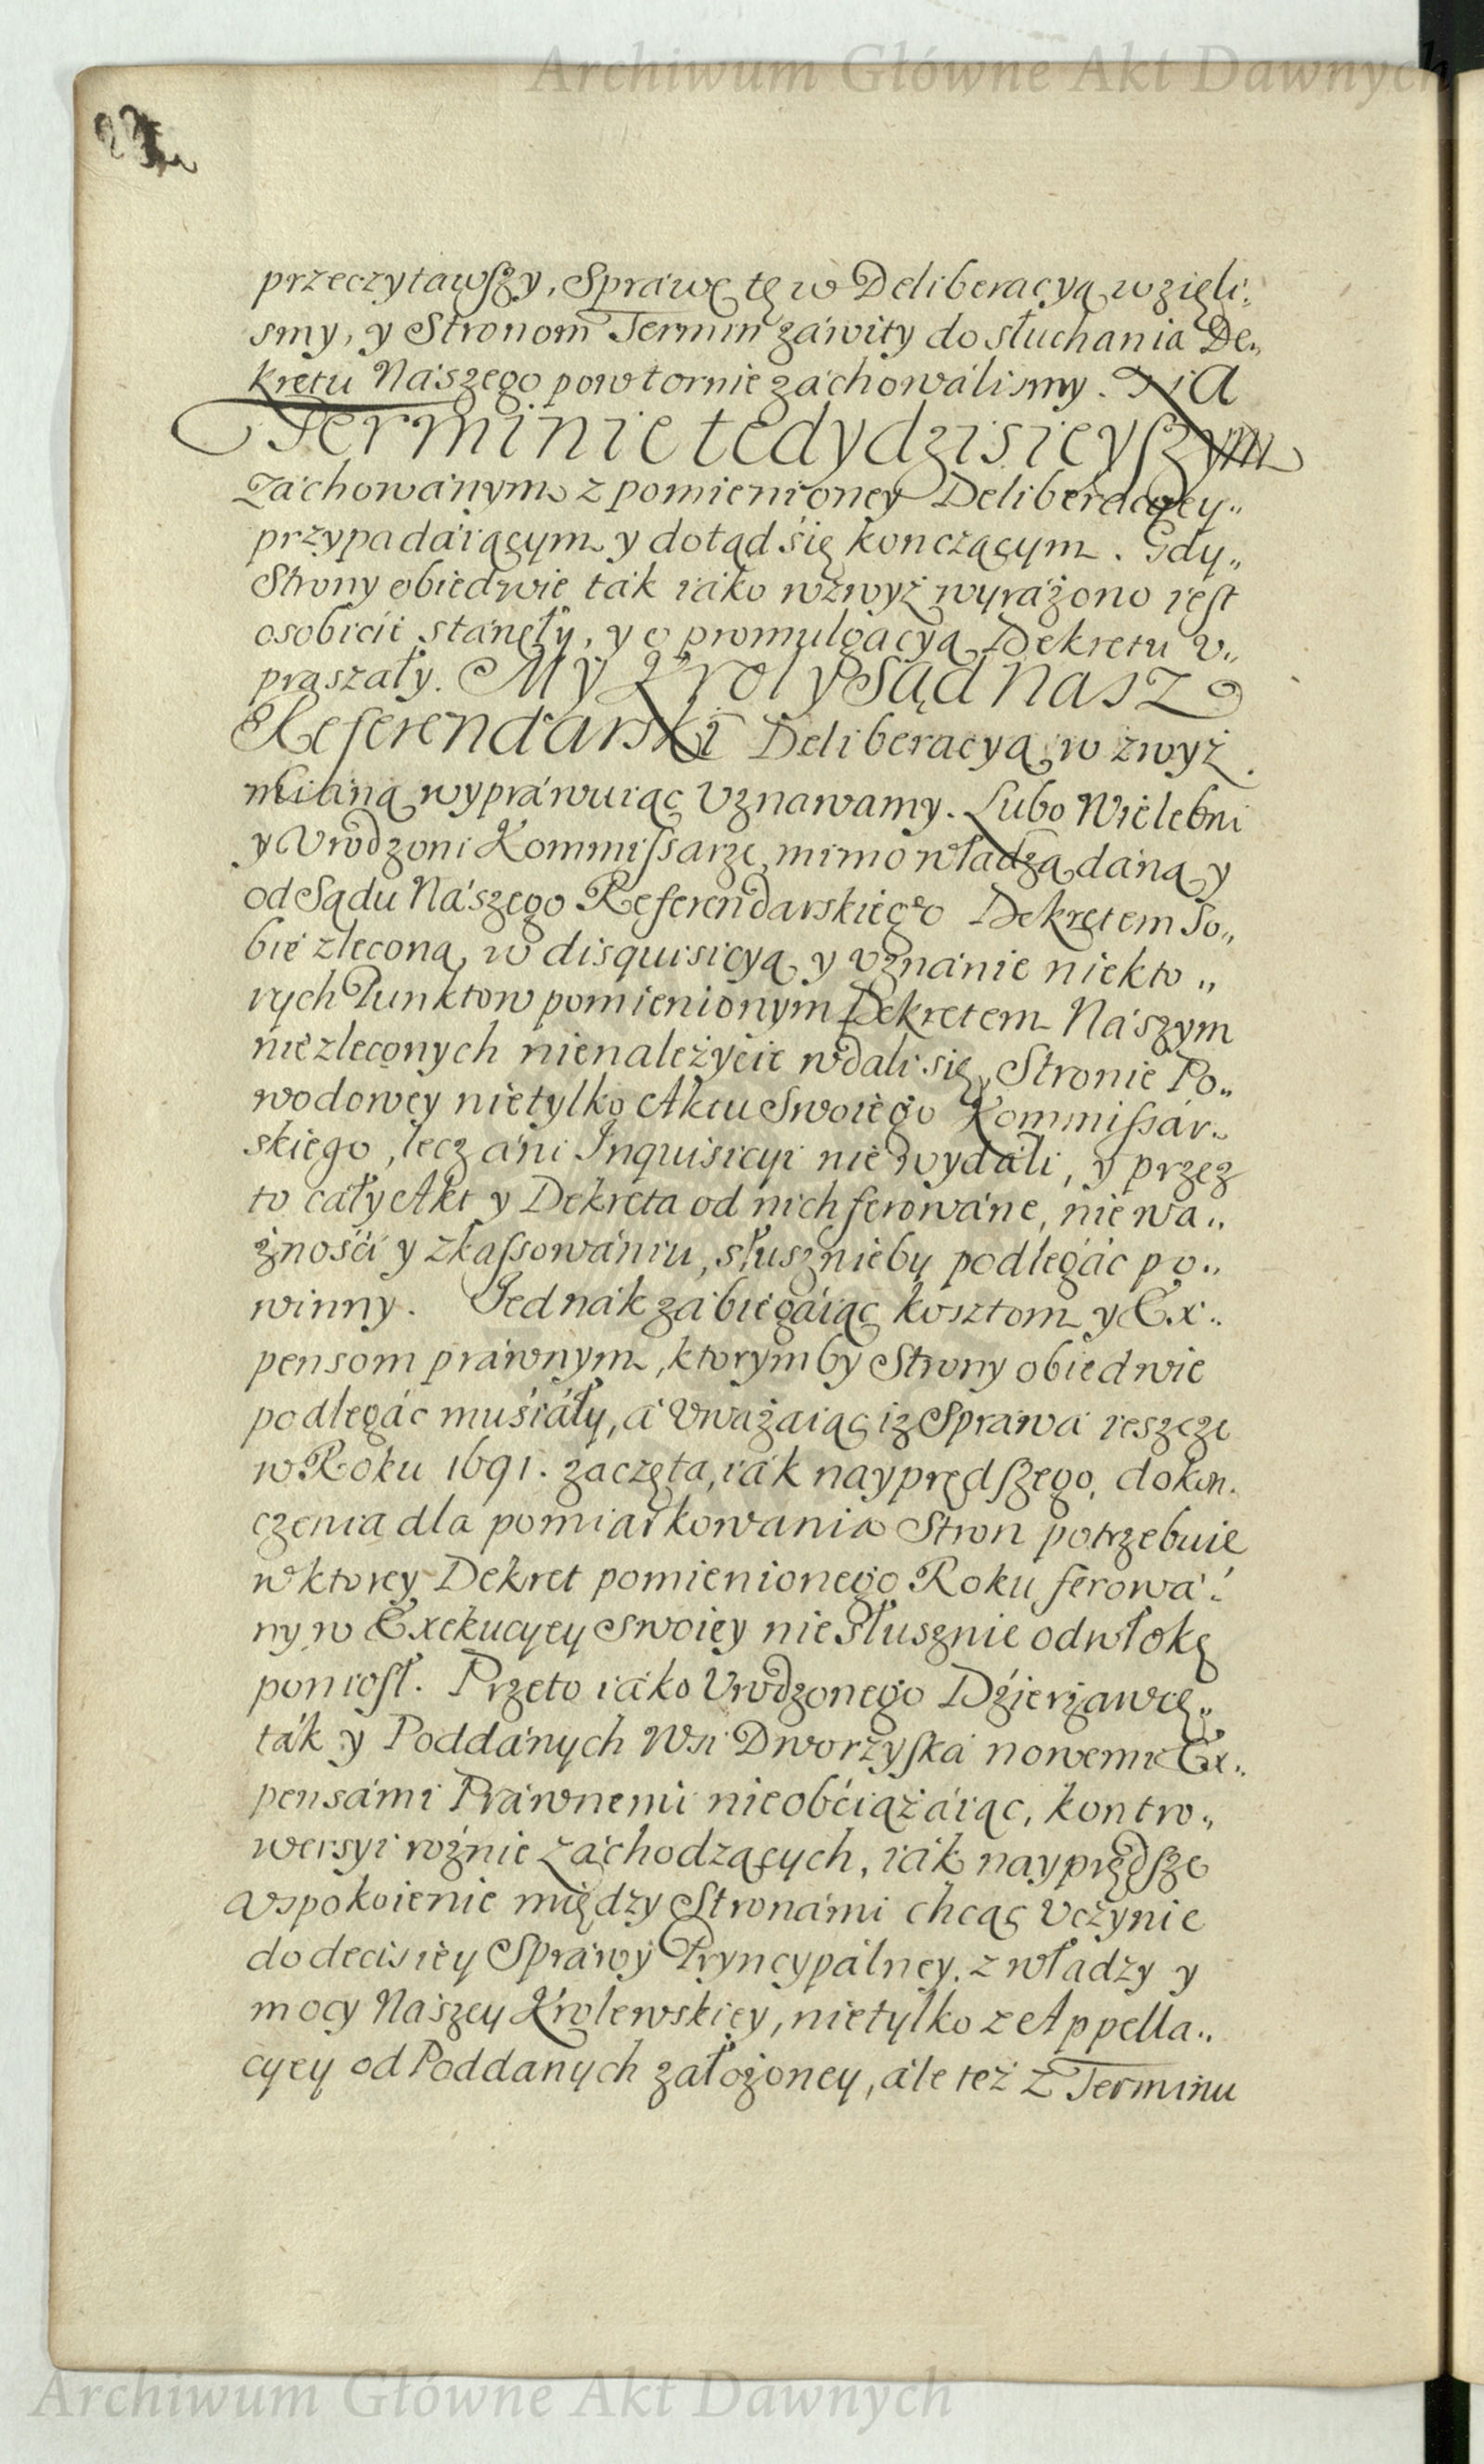 Archiwum Główne Akt Dawnych
przeczytawſzy, Sprawę tę w Deliberacyą wzięli„
smy, y Stronom Termin záwity do słuchania De„
kretu Nászego powtornie záchowálismy. Na
Terminie tedy dzisieyſzym
Záchowánym z pomienioney Deliberacyey„
przypadáiącym y dotąd się konczącym. Gdy„
Strony obiedwie ták iáko wzwyż wyrażono iest
osobiście stánęły, y o promulgacyą Dekretu v„
praszały. My Krol y Sąd Nasz
Referendarski Deliberacyą wzwyż
mianą wypráwuiąc Vznawamy. Lubo Wielebni
y Vrodzoni Kommiſsarze, mimo władzą dáną y
od Sądu Nászego Referendarskiego Dekretem So„
bie zleconą, w disquisicyą y vznánie niekto„
rych Punktow pomienionym Dekretem Nászym
niezleconych nienależycie wdali się, Stronie Po„
wodowey nietylko Aktu Swoiego Kommiſsár„
skiego, lecz áni Inquisicyi nie wydáli, y przez
to cáły Akt y Dekreta od nich ferowáne, niewa„
żności y zkaſsowániu, słusznieby podlegác po„
winny. Jednák zábiegáiąc kosztom y Ex„
pensom práwnym, ktorymby Strony obiedwie
podlegác muśiáły, á Vważaiąc iz Sprawá ieszcze
w Roku 1691. zaczęta, iák nayprędſzego, dokon„
czenia dla pomiarkowania Stron potrzebuie
w ktorey Dekret pomienionego Roku ferowá„
ny w Exekucyey Swoiey niesłusznie odwłokę
poniosł. Przeto iáko Vrodzonego Dźierżawcę„
ták y Poddánych Wsi Dworzyſká nowemi Ex„
pensámi Práwnemi nieobćiążáiąc, kontro„
wersyi rożnie záchodzących, iák nayprędſze
vspokoienie między Stronámi chcąc Vczynic
do decisiey Spráwy Pryncypálney, z władzy y
mocy Nászey Krolewskiey, nietylko z Appella„
cyey od Poddanych záłożoney, ále też z Terminu
Archiwum Główne Akt Dawnych